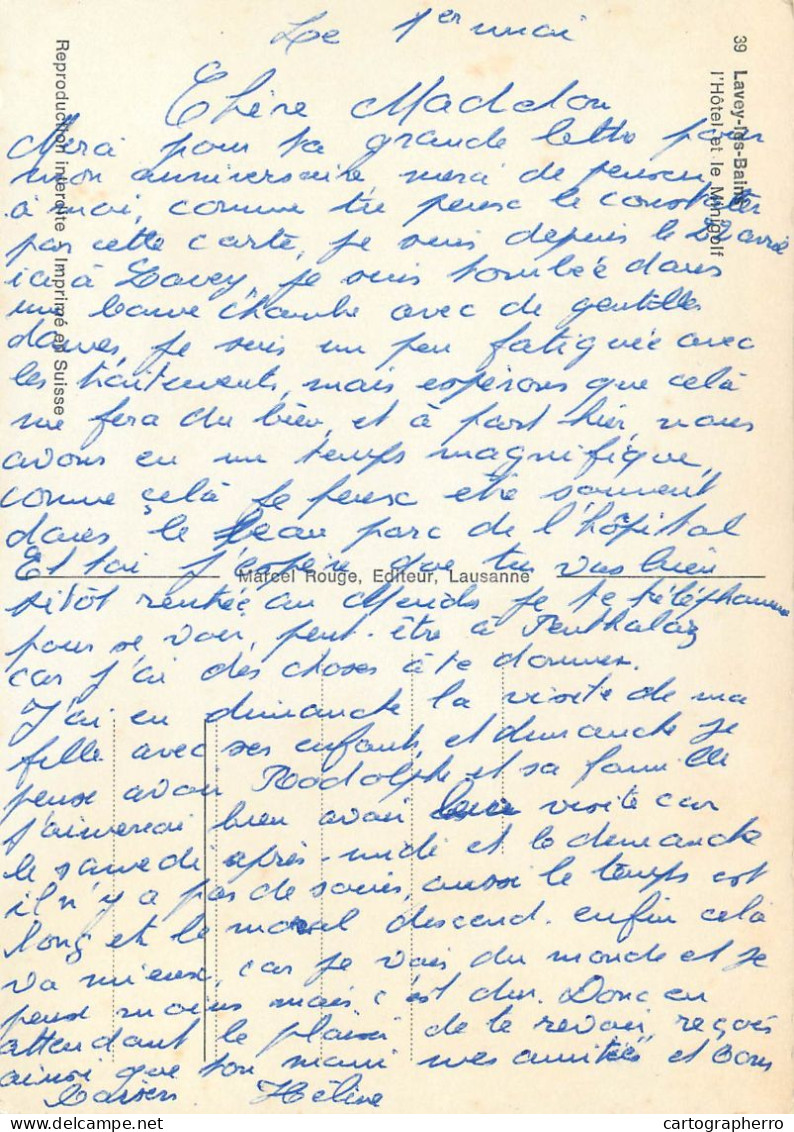 Le 1er mai
Chère Madelon
Merci pour ta grande lettre pour
mon anniversaire, merci de penser
à moi, comme tu peux le constater
par cette carte, je suis depuis le avril
ici à Lavey, je suis tombée dans
une bonne chambre avec de gentilles
dames, je suis un peu fatiguée avec
les traitements, mais espérons que celà
me fera du bien, et à part hier, nous
avons eu un temps magnifique,
comme celà je peux être souvent
dans le beau parc de l'hôpital
Et toi j'espère que tu vas bien
sitôt rentrée au je te téléphonerai
pour se voir, peut-être à Penthalaz
car j'ai des choses à te donner.
J'ai eu dimanche la visite de ma
fille avec ses enfants, et dimanche je
pense avoir Rodolphe et sa famille
j'aimerai bien avoir leur visite car
le samedi après-midi et le dimanche
il n'y a pas de soins, aussi le temps est
long et le moral descend. enfin celà
va mieux, car je vois du monde et je
pense moins mais c'est dur. Donc en
attendant le plaisir de te revoir, reçois
ainsi que ton mari mes amitiés et bons
baisers Hélène
39 Lavey-les-Bains
l'Hôtel et le Minigolf
Reproduction interdite - Imprimé en Suisse
Marcel Rouge, Editeur, Lausanne
cartographerro